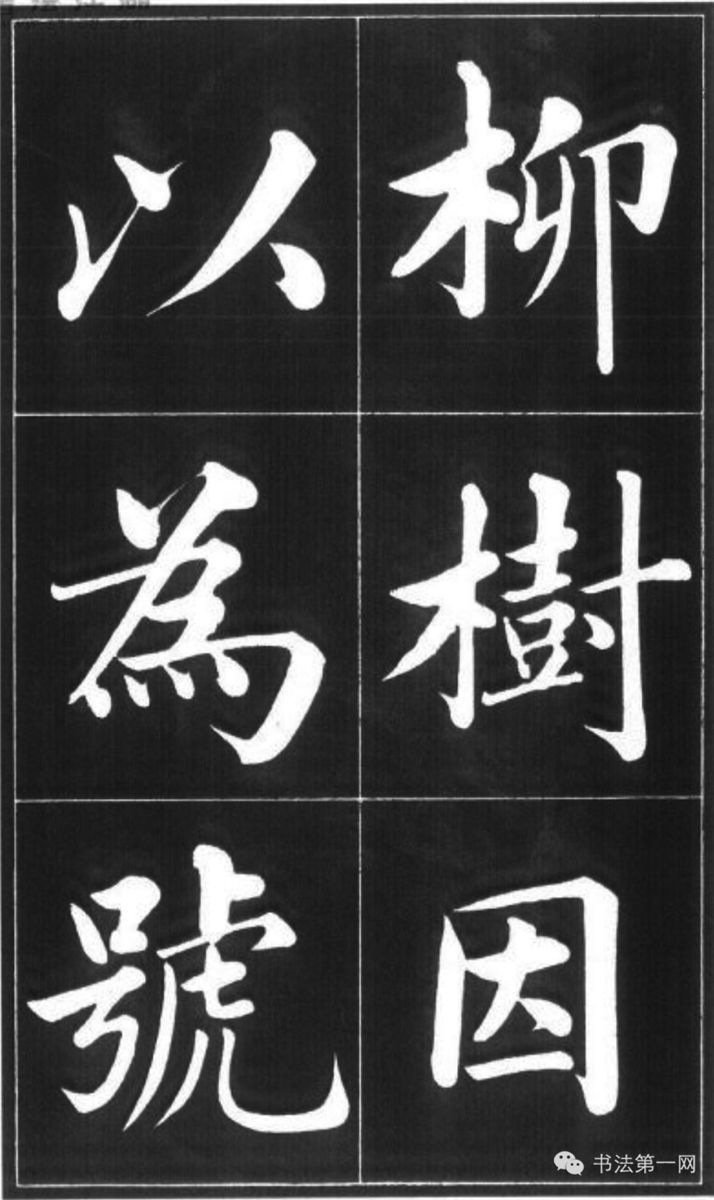 柳樹因
以為號
书法第一网